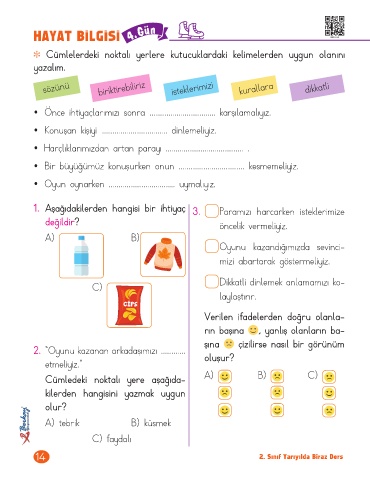 HAYAT BİLGİSİ 4. Gün
* Cümlelerdeki noktalı yerlere kutucuklardaki kelimelerden uygun olanını
yazalım.
sözünü biriktirebiliriz isteklerimizi kurallara dikkatli
• Önce ihtiyaçlarımızı sonra ................................ karşılamalıyız.
• Konuşan kişiyi ................................ dinlemeliyiz.
• Harçlıklarımızdan artan parayı ...................................... .
• Bir büyüğümüz konuşurken onun ................................ kesmemeliyiz.
• Oyun oynarken ................................ uymalıyız.
1. Aşağıdakilerden hangisi bir ihtiyaç
değildir?
A) B)
C)
CİPS
2. "Oyunu kazanan arkadaşımızı ............
etmeliyiz."
Cümledeki noktalı yere aşağıda-
kilerden hangisini yazmak uygun
olur?
A) tebrik B) küsmek
C) faydalı
3. Paramızı harcarken isteklerimize
öncelik vermeliyiz.
Oyunu kazandığımızda sevinci-
mizi abartarak göstermeliyiz.
Dikkatli dinlemek anlamamızı ko-
laylaştırır.
Verilen ifadelerden doğru olanla-
rın başına 🙂, yanlış olanların ba-
şına 🙁 çizilirse nasıl bir görünüm
oluşur?
A) B) C)
14
2. Sınıf Tarıyılda Biraz Ders